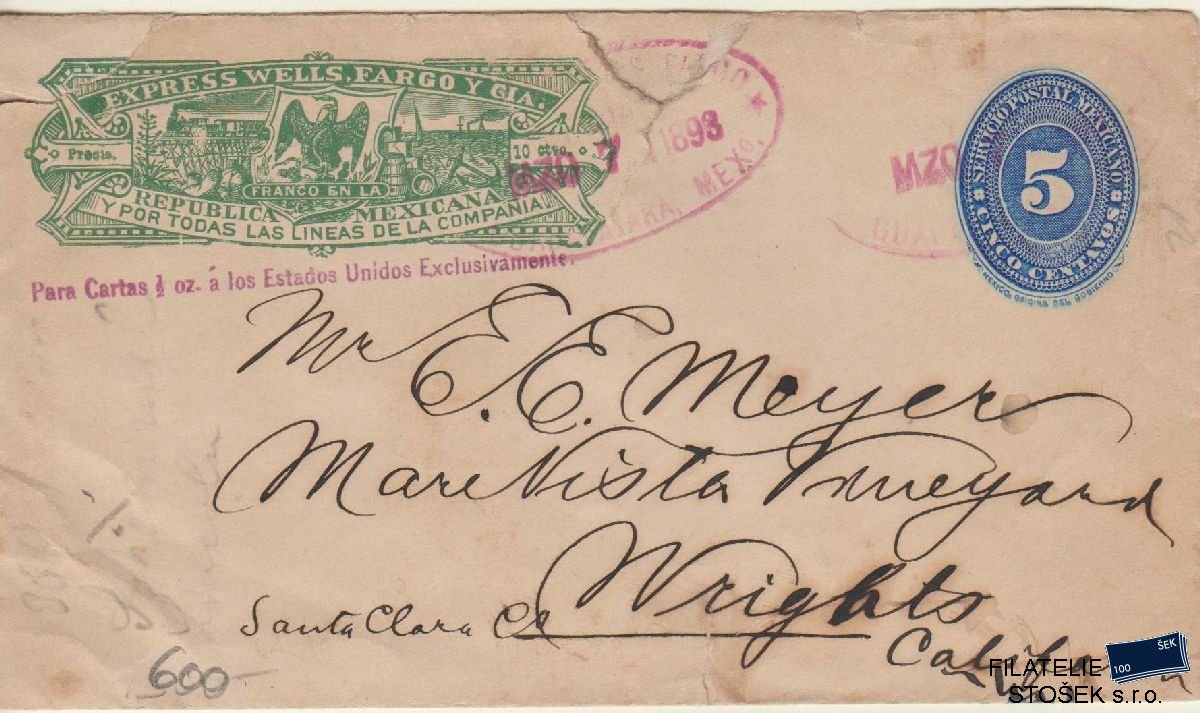 EXPRESS WELLS, FARGO Y CIA.
Precio. 10 ctvo.
FRANCO EN LA
REPUBLICA MEXICANA
Y POR TODAS LAS LINEAS DE LA COMPAÑIA
Para Cartas ½ oz. á los Estados Unidos Exclusivamente.
MZO 7 1893
GUADALAJARA, MEXO.
MZO
SERVICIO POSTAL MEXICANO
5
CINCO CENTAVOS
MEXICO, OFICINA DEL GOBIERNO
Mr E. E. Meyer
Mare Vista Vineyard
Wrights
Santa Clara Co
California
600-
FILATELIE
STOŠEK s.r.o.
100 ŠEK